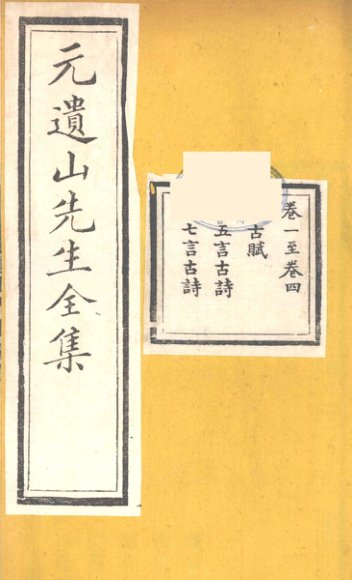 元遺山先生全集
卷一至卷四
古賦
五言古詩
七言古詩